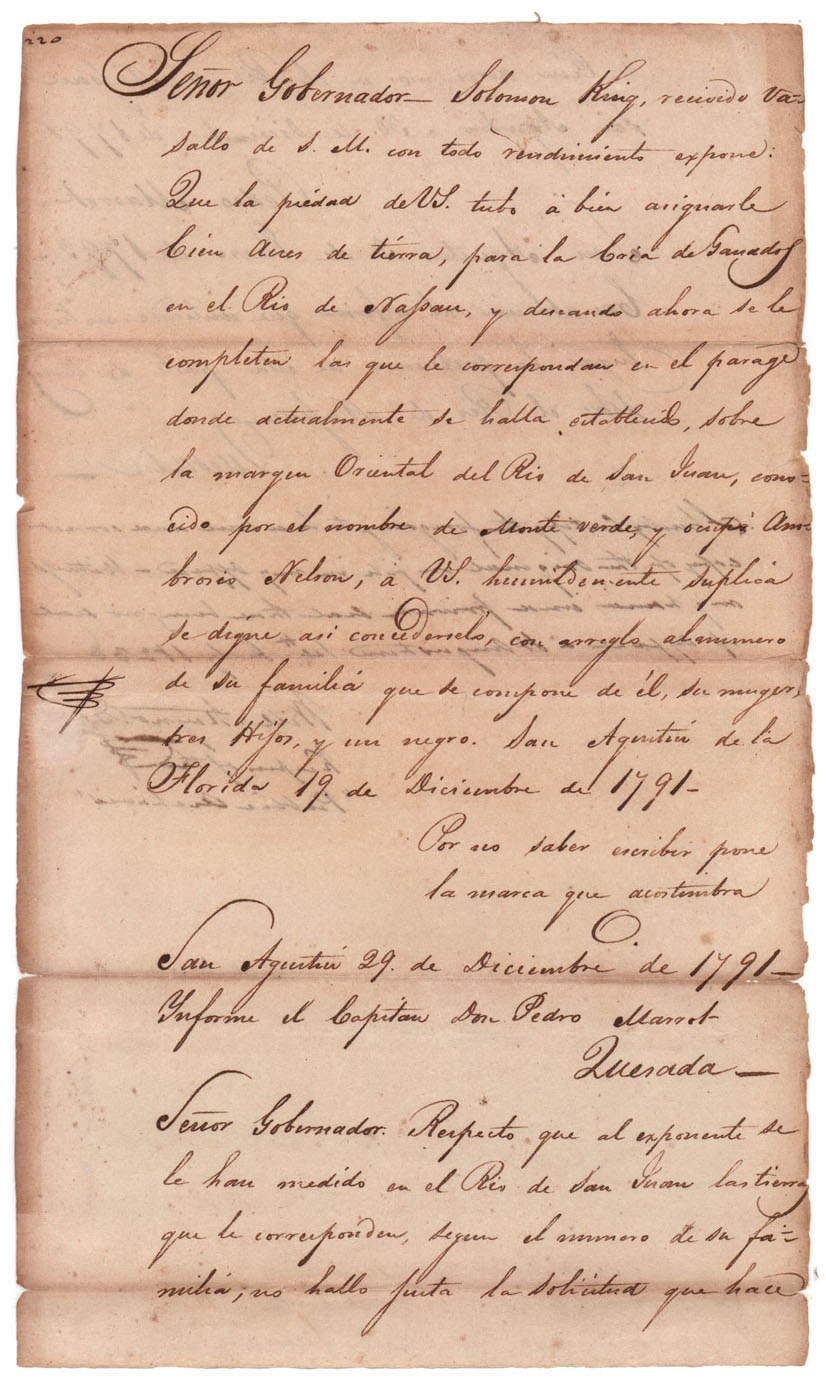 220
Señor Gobernador— Solomon King, recivido Va=
sallo de S. M. con todo rendimiento expone:
Que la piedad de VS. tubo á bien asignarle
Cien Acres de tiérra, para la Cria de Ganados
en el Rio de Nassau, y deseando ahora se le
completen las que le correspondan en el parage
donde actualmente se halla establecido, sobre
la margen Oriental del Rio de San Juan, cono=
cido por el nombre de Monte verde, y ocupó Am=
brosio Nelson, á VS. humildemente suplica
se digne asi concederselo, con arreglo al numero
de su familiá que se compone de él, su muger,
tres Hijos, y un negro. San Agustin de la
Florida 19. de Diciembre de 1791—
Por no saber escribir pone
la marca que acostumbra
O.
San Agustin 29. de Diciembre de 1791—
Informe el Capitan Don Pedro Marrot
Quesada—
Señor Gobernador. Respecto que al exponente se
le han medido en el Rio de San Juan las tierras
que le corresponden, segun el numero de su fa=
miliá, no hallo justa la solicitud que hace